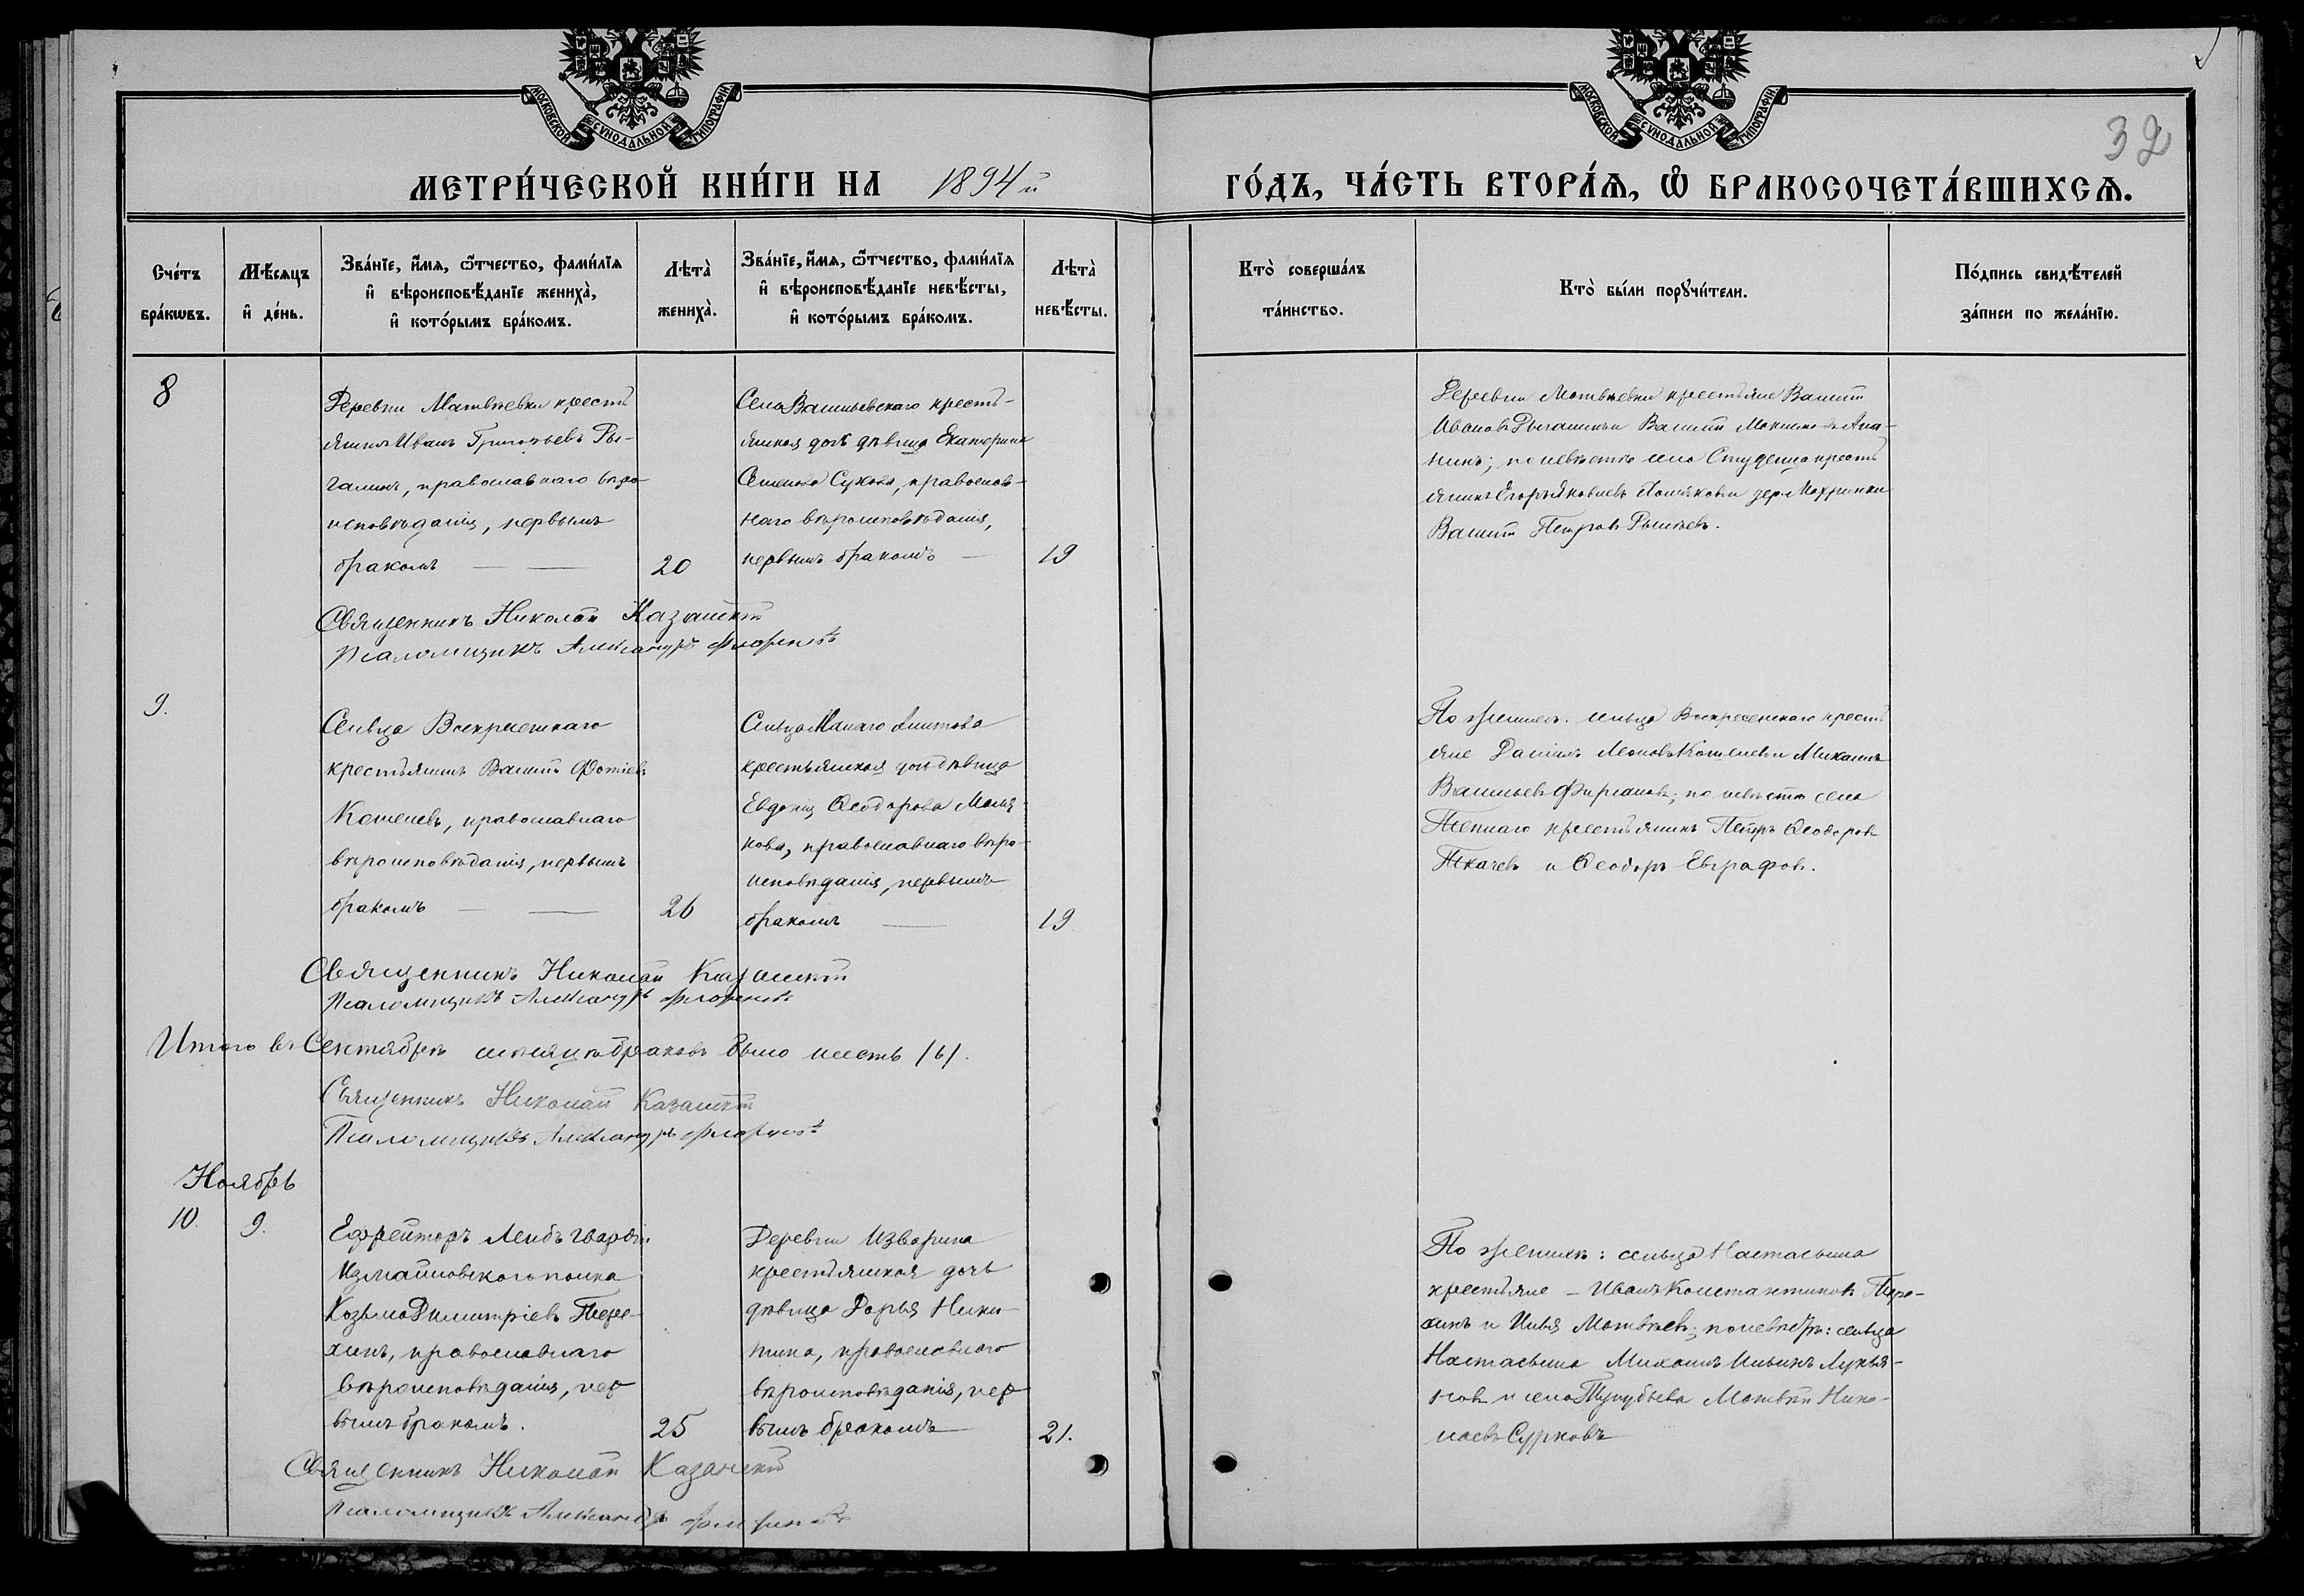 МОСКОВСКОЙ СѴНОДАЛЬНОЙ ТИПОГРАФІИ
МОСКОВСКОЙ СѴНОДАЛЬНОЙ ТИПОГРАФІИ
32
МЕТРИ́ЧЕСКОЙ КНИ́ГИ НА 1894 й
ГО́ДЪ, ЧА́СТЬ ВТОРА́Ѧ, Ѽ БРАКОСОЧЕТА́ВШИХСѦ.
Сче́тъ бра́кѡвъ.
Мѣ́сяцъ и де́нь.
Зва́нїе, и́мѧ, ѿтчество, фами́лїѧ
и вѣроисповѣ́данїе жениха̀,
и кото́рымъ бра́комъ.
Лѣта̀ жениха̀.
Зва́нїе, и́мѧ, ѿтчество, фами́лїѧ
и вѣроисповѣ́данїе невѣ́сты,
и кото́рымъ бра́комъ.
Лѣта̀ невѣ́сты.
Кто̀ соверша́лъ та́инство.
Кто̀ бы́ли порꙋчи́тели.
По́дпись свидѣ́телей
за́писи по жела́нїю.
8
Деревни Матвѣевки кресть
янинъ Иванъ Григорьевъ Ры-
галинъ, православнаго вѣро-
исповѣданія, первымъ
бракомъ — — 20
Села Васильевскаго кресть-
янская дочь дѣвица Екатерина
Семенова Сухова, православ-
наго вѣроисповѣданія,
первымъ бракомъ — 19
Деревни Матвѣевки крестьяне Василій
Ивановъ Рыгалинъ и Василій Максимовъ Ана-
нинъ; по невѣстѣ села Студенца кресть
янинъ Егоръ Яковлевъ и дер.
Василій Петровъ
Священникъ Николай Казанскій
Псаломщикъ Александръ
9.
Сельца Воскресенскаго
крестьянинъ Василій Фотіевъ
Кошелевъ, православнаго
вѣроисповѣданія, первымъ
бракомъ — — 26
Сельца Малаго
крестьянская дочь дѣвица
Евдокія Ѳеодорова
кова, православнаго вѣро-
исповѣданія, первымъ
бракомъ — 19
По женихѣ: сельца Воскресенскаго кресть
яне Даніилъ Леоновъ Кошелевъ и Михаилъ
Васильевъ Фирсановъ; по невѣстѣ села
Теплаго крестьянинъ Петръ Ѳеодоровъ
Ткачевъ и Ѳеодоръ Евграфовъ.
Священникъ Николай Казанскій
Псаломщикъ Александръ
Итого въ Сентябрѣ мѣсяцѣ браковъ было шесть /6/.
Священникъ Николай Казанскій
Псаломщикъ Александръ
Ноябрь
10. 9.
Ефрейторъ Лейбъ гвардіи
Измайловскаго полка
Козьма Димитріевъ Тере-
хинъ, православнаго
вѣроисповѣданія, пер
вымъ бракомъ. 25
Деревни Изварина
крестьянская дочь
дѣвица Дарья Ники-
тина, православнаго
вѣроисповѣданія, пер
вымъ бракомъ 21.
По женихѣ: сельца Настасьина
крестьяне – Иванъ Константиновъ Тере-
хинъ и Илья Матвѣевъ; по невѣстѣ: сельца
Настасьина Михаилъ Ильинъ Лукья-
новъ и села Матвѣй Нико-
лаевъ Сурковъ
Священникъ Николай Казанскій
Псаломщикъ Александръ